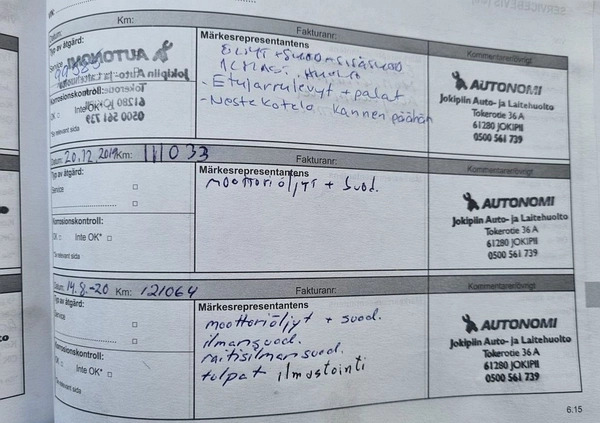 Km:
Fakturanr:
Datum:
Typ av åtgärd:
Service
Korrosionskontroll:
OK □ Inte OK* □
*Se relevant sida
Märkesrepresentantens
Öljyt + suod + sisäsuod
- Etujarrulevyt + palat
- Nestekotelo kannen päähän
Kommentarer/övrigt
AUTONOMI
Jokipiin Auto- ja Laitehuolto
Tokerotie 36 A
61280 JOKIPII
0500 561 739
Datum: 20.12.2019 Km: 111 033
Fakturanr:
Typ av åtgärd:
Service □
□
Korrosionskontroll:
OK □ Inte OK* □
*Se relevant sida
Märkesrepresentantens
moottoriöljyt + suod.
Kommentarer/övrigt
AUTONOMI
Jokipiin Auto- ja Laitehuolto
Tokerotie 36 A
61280 JOKIPII
0500 561 739
Datum: 14.8.-20 Km: 121064
Fakturanr:
Typ av åtgärd:
Service □
□
Korrosionskontroll:
OK □ Inte OK* □
*Se relevant sida
Märkesrepresentantens
moottoriöljyt + suod.
ilmansuod.
raitisilmansuod.
tulpat ilmastointi
Kommentarer/övrigt
AUTONOMI
Jokipiin Auto- ja Laitehuolto
Tokerotie 36 A
61280 JOKIPII
0500 561 739
6.15